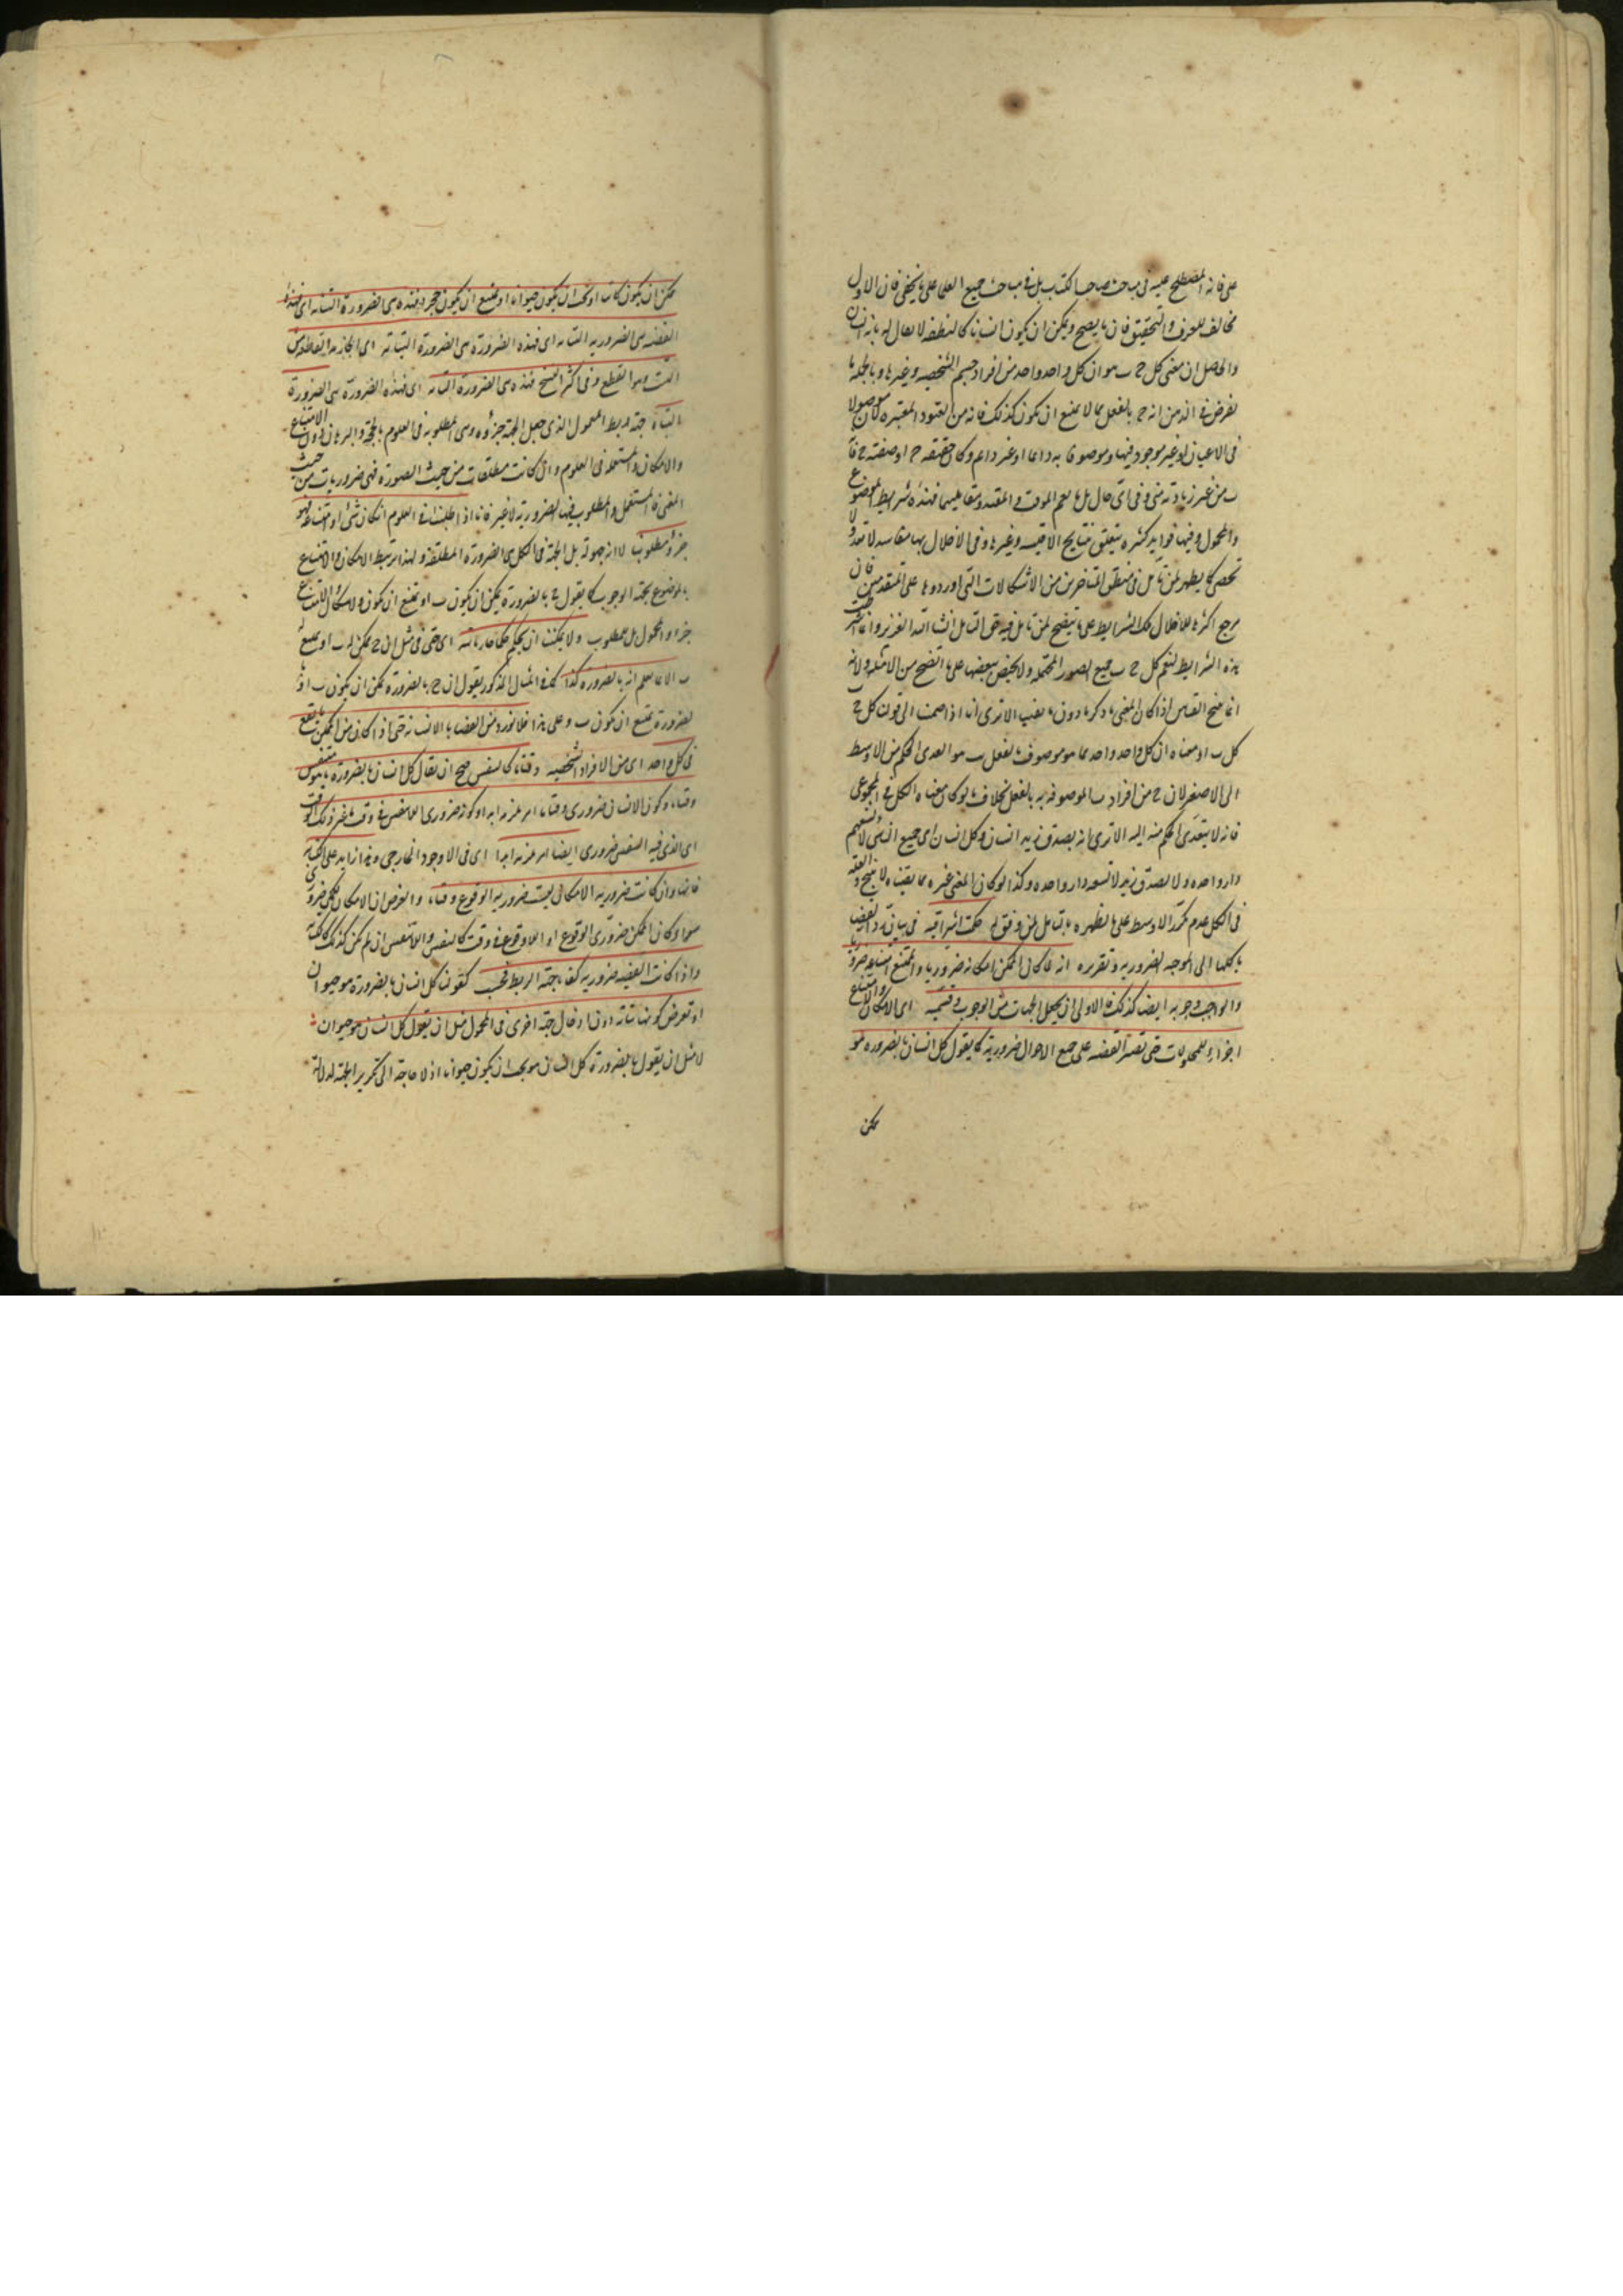 على فانه المصطلح عليه فى مباحث صاحب الكتاب بل فى مباحث جميع العلما على ما يخفى فان الاول
مخالف للعرف والتحقيق فان ما يصح ويمكن ان يكون انسانا كالنطفة لا يقال له بانه انسان
والحاصل ان معنى كل ج ب هو ان كل واحد واحد من افراد جسم الشخصيه وغيرها وبالجملة ما
يفرض فى الذهن انه ج بالفعل مما لا يمتنع ان يكون كذلك فانه من القيود المعتبره كان موصولا
فى الاعيان او غير موجود فيها وموصوفا به دائما او غير دائم وكان حقيقته ج او صفته ج فا
ب من غير زيادة متى وفى اى حال بل ما يعم الموقت والمقيد ومقابليهما فهذه شرايط الموضوع
والمحمول وفيها فوايد كثيره يتعلق بنتايج الاقيسه وغيرها وفى الاخلال بها مفاسد لا تعد ولا
تحصى كما يظهر لمن تأمل فى منطق المتاخرين من الاشكالات التى اوردوها على المتقدمين فان
مرجع اكثرها للاخلال بتلك الشرايط على ما يتضح لمن تامل فيه حق التامل ان شا الله العزيز وانما اشترطت
هذه الشرايط ليعم كل ج ب جميع الصور المحتمله ولا يختص ببعضها على ما اتضح من الامثله ولانه
انما ينتج القياس اذا كان المعنى ما ذكرنا دون ما يغيب الا ترى انا اذا ضممت الى قولك كل ج
كل ب ا ومعناه ان كل واحد واحد مما هو موصوف بالفعل ب هو ا تعدى الحكم من الاوسط
الى الاصغر لان ج من افراد ب الموصوفه به بالفعل بخلاف ما لو كان معناه الكل المجموعى
فانه لا يتعدى الحكم منه اليه الا ترى انه يصدق زيد انسان وكل انسان اى جميع اناسى لا تسعهم
دار واحده ولا يصدق زيد لا تسعه دار واحده وكذا لو كان المعنى غيره مما يقيناه لا ينتج والعله
فى الكل عدم تكرر الاوسط على ما تظهره بالتامل لمن وفق له حكمة اشراقيه فى بيان رد القضايا
بكلها الى الموجبه الضروريه وتقريره انه لما كان الممكن امكانه ضروريا والممتنع امتناعه ضروريا
والواجب وجوبه ايضا كذلك فالاولى ان يجعل الجهات من الوجوب وقسيميه اى الامكان والامتناع
اجزاءِ للمحمولات حتى تصير القضيه على جميع الاحوال ضروريه كما يقول كل انسان بالضروره هو
ممكن
ممكن ان يكون كاتبا او يجب ان يكون حيوانا او يمتنع ان يكون حجرا فهذه هى الضرورة البتاته اى فهذه
القضيه هى الضروريه البتاته اى فهذه الضرورة هى الضرورة البتاتة اى الجازمه القاطعة من
البت وهو القطع وفى اكثر النسخ فهذه هى الضرورة البتاته اى فهذه الضرورة هى الضرورة
البتاتة جهة لربط المحمول الذى جعل الجهة جزؤه وهى المطلوبه فى العلوم بالحجه والبرهان دون الامتناع
والامكان والمستعمله فى العلوم وان كانت مطلقات من حيث الصورة فهى ضروريات من حيث
المعنى فالمستعمل والمطلوب فيها الضروريه لا غير فانا اذا طلبنا فى العلوم امكان شئ او امتناعه فهو
جزؤ مطلوبنا لا انه جهة له بل الجهة فى الكل هى الضرورة المطلقه ولهذا يرتبط الامكان والامتناع
بالموضوع بجهة الوجوب كما يقول ج بالضرورة يمكن ان يكون ب او يمتنع ان يكون والامكان والامتناع
جزا والمحمول بل للمطلوب ولا يمكننا ان نحكم حكما جازما بته اى حتى فى مثل ان ج ممكن له ب او يمتنع
ب الا بما نعلم انه بالضروره كذا كما فى المثال المذكور يقول ان ج بالضروره يمكن ان يكون ب او
بالضرورة يمتنع ان يكون ب وعلى هذا فلا نورد من القضايا الا البتاته حتى اذا كان من الممكن ما يقع
فى كل واحد اى من الافراد الشخصيه وقتا ما كالتنفس صح ان يقال كل انسان بالضرورة متنفس
وقتا ما وكون الانسان ضرورى وقتا ما امر يلزمه ابدا وكونه ضرورى اللاتنفس فى وقت ما غير ذلك الوقت
اى الذى فيه التنفس ضرورى ايضا امر يلزمه ابدا اى فى الوجود الخارجى وهذا زايد على الكتابه
فانها وان كانت ضرورية الامكان ليست ضرورية الوقوع وقتا ما والغرض ان الامكان يكون ضروريا
سوا كان الممكن ضرورى الوقوع او اللاوقوع فى وقت كالتنفس واللاتنفس ان لم يكن كذلك كالكتابة
واذا كانت القضيه ضروريه كفانا جهة الربط فحسب كقولنا كل انسان بالضرورة هو حيوان
او تعرض كونها بتاته دون ادخال جهة اخرى فى المحمول مثل ان يقول كل انسان هو حيوان
لا مثل ان يقول بالضرورة كل انسان هو يجب ان يكون حيوانا اذ لا حاجة الى تكرير الجهة لدلالة